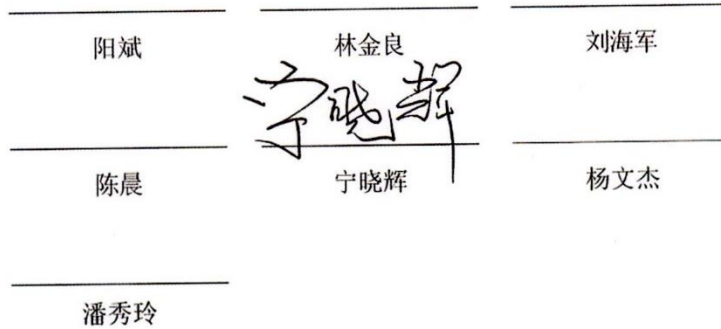 阳斌 林金良 刘海军
宁晓辉
陈晨 宁晓辉 杨文杰
潘秀玲